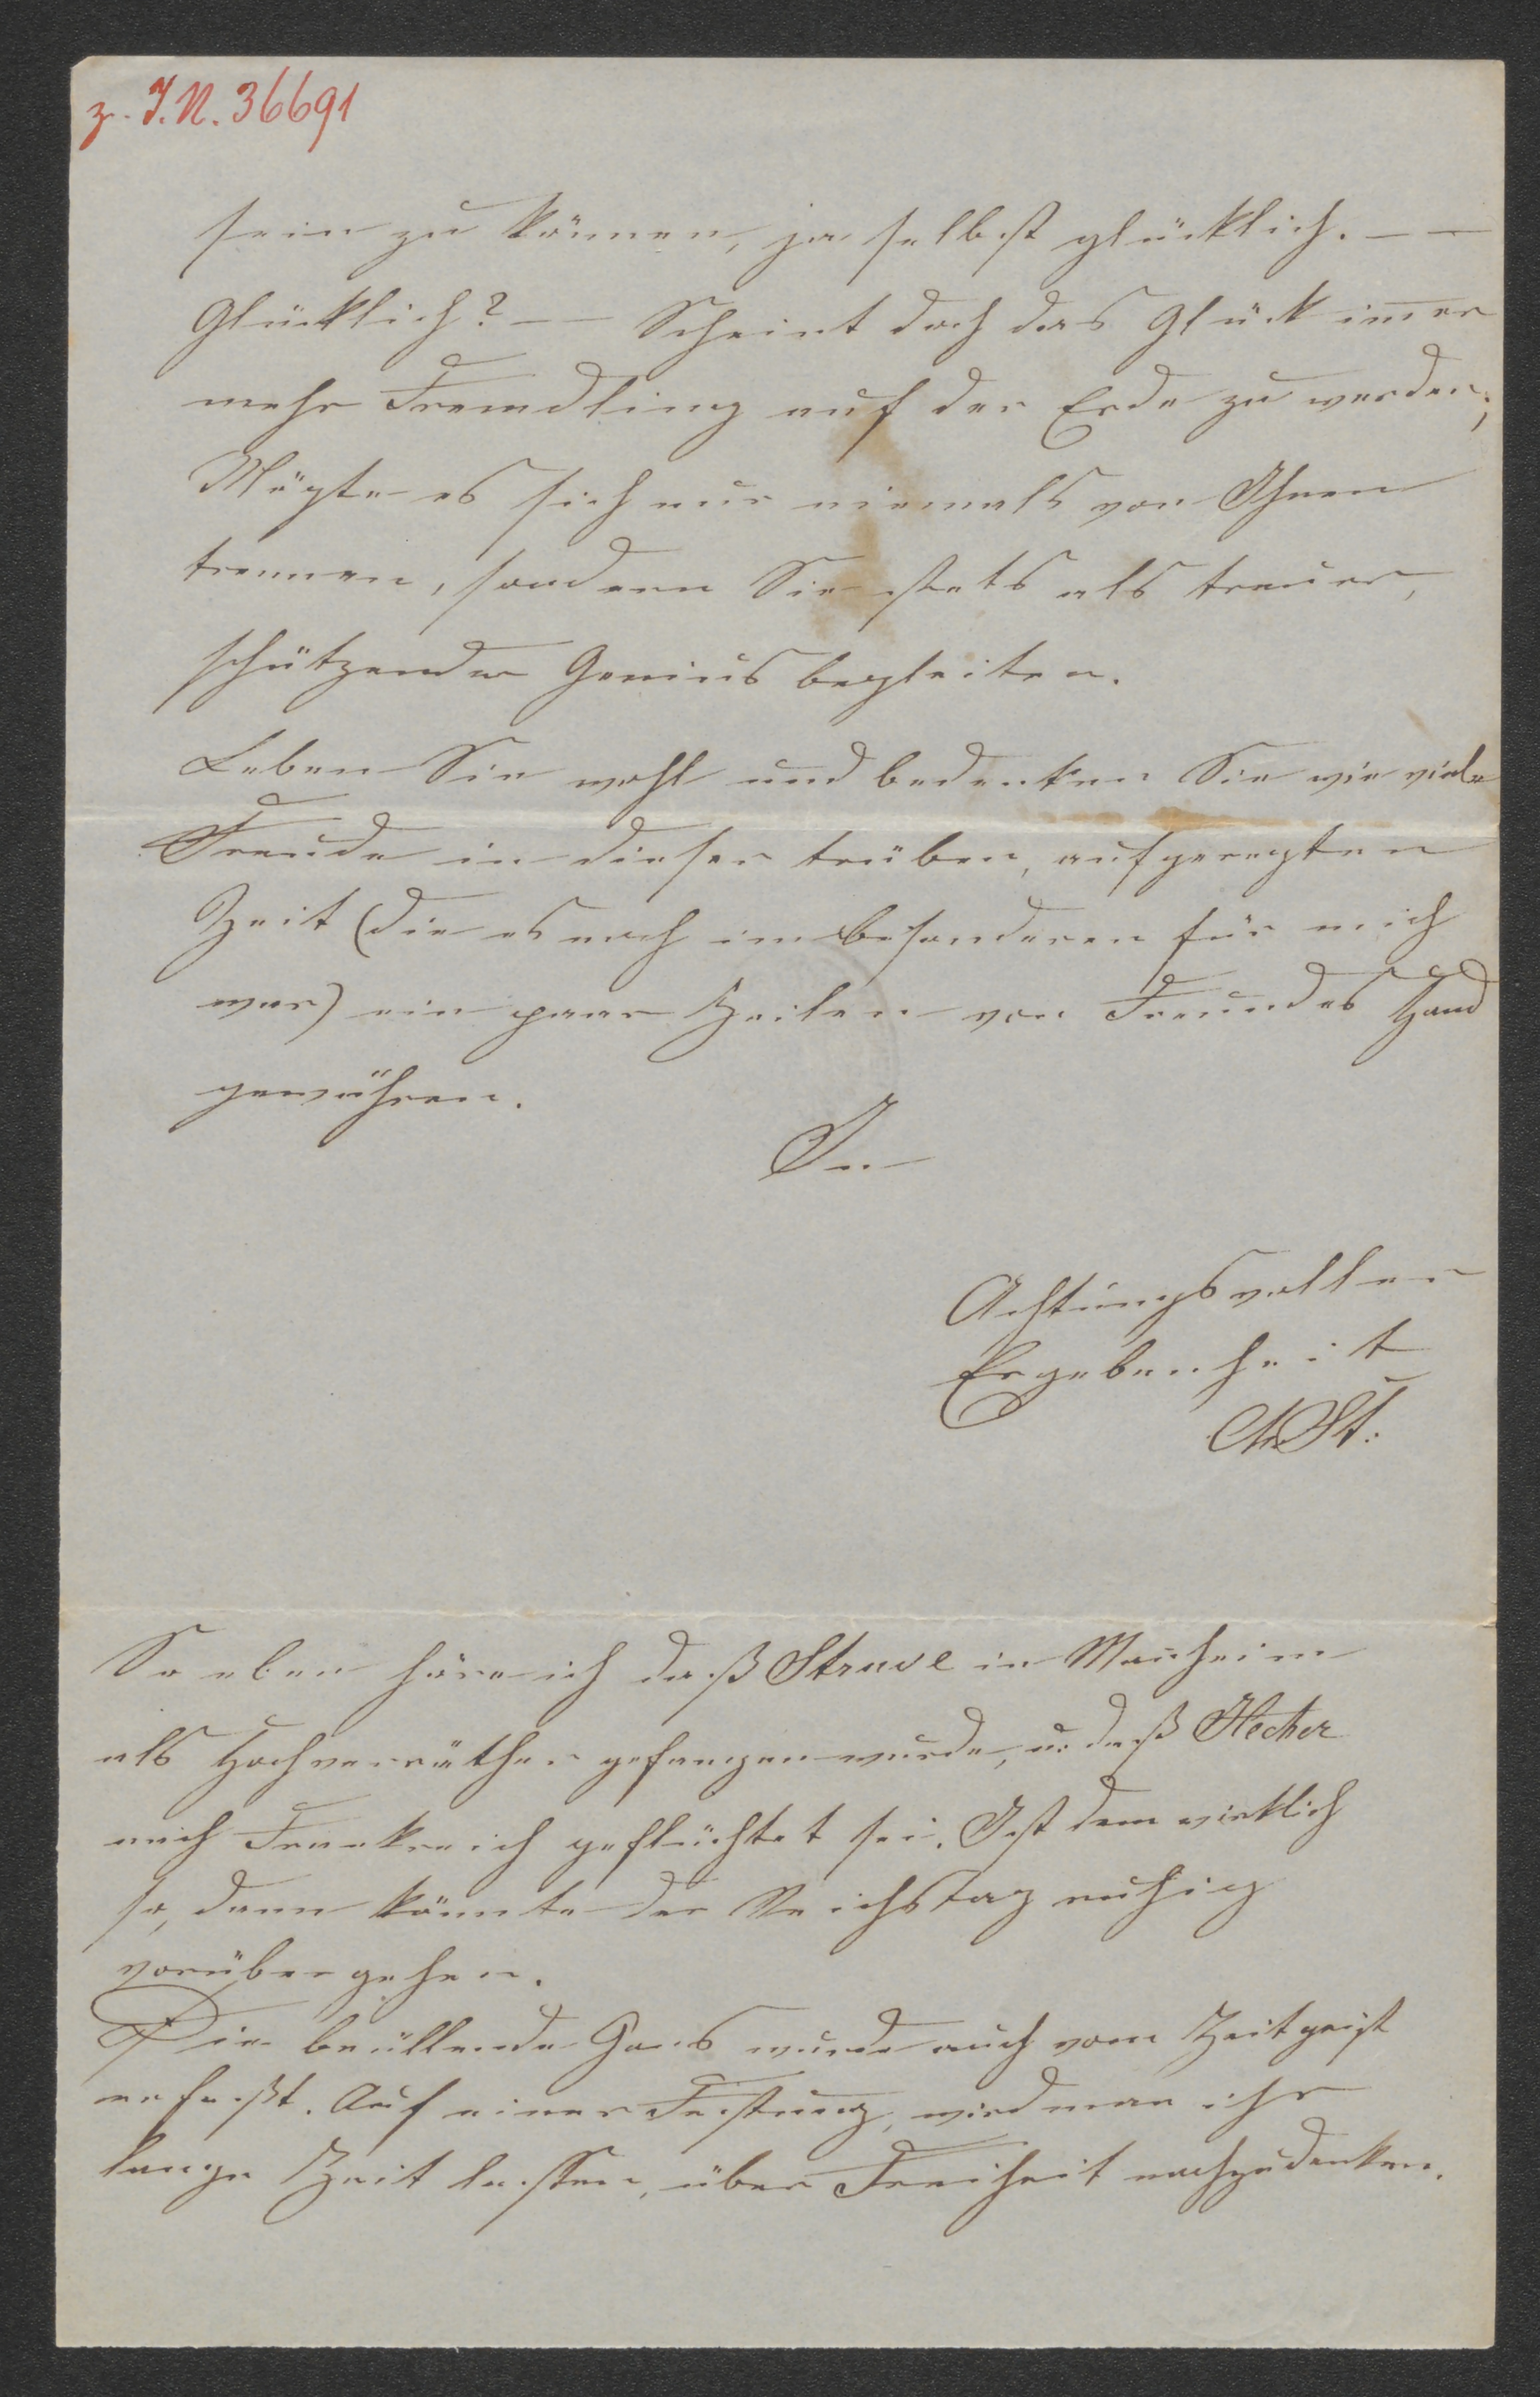 z. I.N. 36691
sein zu können, ja selbst glücklich. — —
Glücklich? — — Scheint doch das Glück im̄er
mehr Fremdling auf der Erde zu werden;
Mögte es sich nur niemals von Ihnen
trennen, sondern Sie stets als treuer,
schützender Genius begleiten.
Leben Sie wohl und bedenken Sie wie viele
Freude in dieser trüben, aufgeregten
Zeit (die es noch im besonderen für mich
war) ein paar Zeilen von Freundes Hand
gewähren.
In
Achtungsvoller
Ergebenheit
So eben höre ich daß Struve in Man̄heim
als Hochverräther gefangen wurde, u: daß Hecker
nach Frankreich geflüchtet sei. Ist dem wirklich
so, dann könnte der Reichstag ruhig
vorübergehen.
Die brüllende Gans wurde auch vom Zeitgeist
erfaßt. Auf einer Festung, wird man ihr
lange Zeit lassen, über Freiheit nachzudenken.